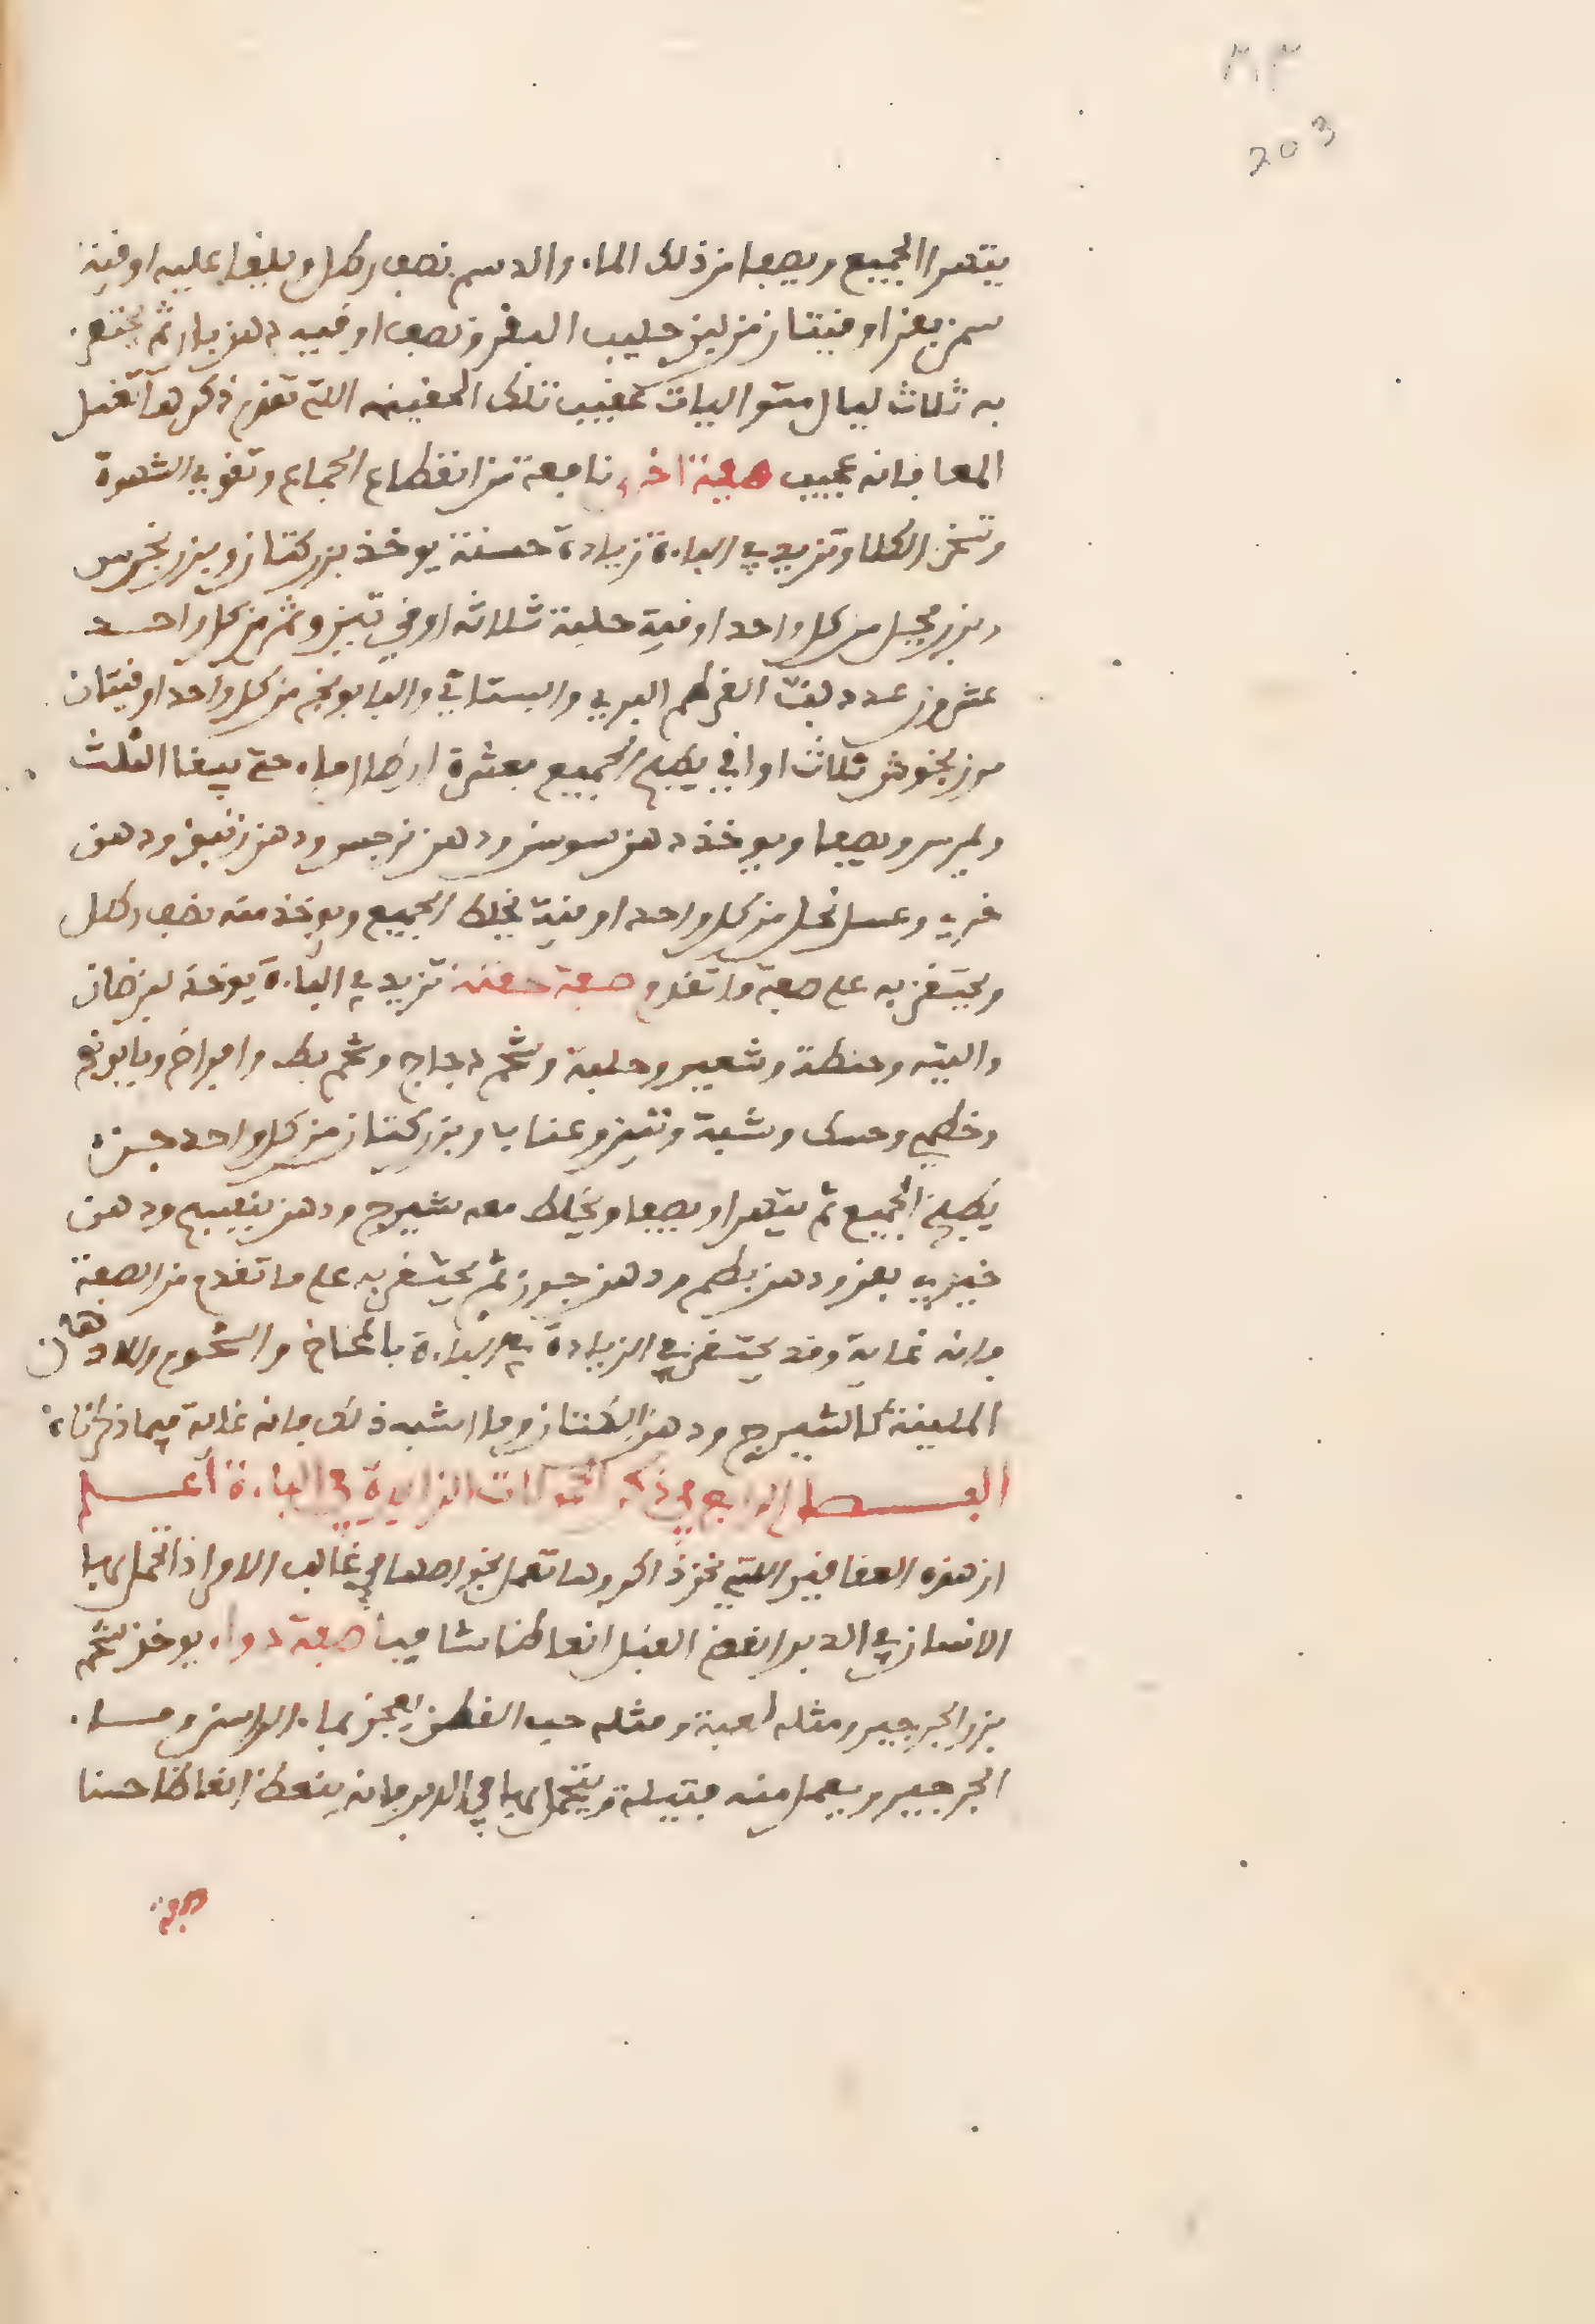 ٨٣
203
يتهرا الجميع ويصفا من ذلك الماء والدسم نصف رطل ويلقا عليه اوقية
سمن بقر اوقيتان من لبن حليب البقر ونصف اوقيه دهن بان ثم يحتقن
به ثلاث ليال متواليات عقيب تلك الحقينه التي تقدم ذكرها تغسل
المعا فانه عجيب صفة اخرى نافعة من انقطاع الجماع وتقوي الشهوة
وتسخن الكلا وتزيد في الباءة زيادة حسنة يوخذ بزر كتان وبزر
وبزر فجل من كل واحد اوقية حلبة ثلاثة اوقي تين وتمر من كل واحد
عشرون عدد لب القرطم البري والبستاني والبابونج من كل واحد اوقيتان
مرزنجوش ثلاث اواقي يطبخ الجميع بعشرة ارطال ماء حتى يبقا الثلث
ويمرس ويصفا ويوخذ دهن سوسن ودهن نرجس ودهن زنبق ودهن
خيري وعسل نحل من كل واحد اوقية يخلط الجميع ويوخذ منه نصف رطل
ويحتقن به على صفة ما تقدم صفة حقنة تزيد في الباءة يوخذ لبن ضان
واليته وحنطة وشعير وحلبة وشحم دجاج وشحم بط وافراخ وبابونج
وخطمي وحسك وشبة وتين وعنابا وبزر كتان من كل واحد جزء
يطبخ الجميع ثم يتهرا ويصفا ويخلط معه شيرج ودهن بنفسج ودهن
خيري بقر ودهن بطم ودهن جوز ثم يحتقن به على ما تقدم من الصفة
فانه غاية وقد يحتقن في الزيادة في الباءة بالمخاخ والشحوم والادهان
الملينة كالشيرج ودهن الكتان وما اشبه ذلك فانه غاية فيما ذكرناه
الفصل الرابع في ذكر الحمولات الزايدة في الباءة اعلم
ان هذه العقاقير التي نحن ذاكروها تعمل بخواصها في غالب الامر اذا تحمل بها
الانسان في الدبر انعض القبل انعاظا شافيا صفة دواء يوخذ شحم
بزر الجرجير ومثله لعبة ومثله حب القطن يعجن بماء الراسن وماء
الجرجير ويعمل منه فتيلة يتحمل بها في الدبر فانه ينعظ انعاظا حسنا
صفة